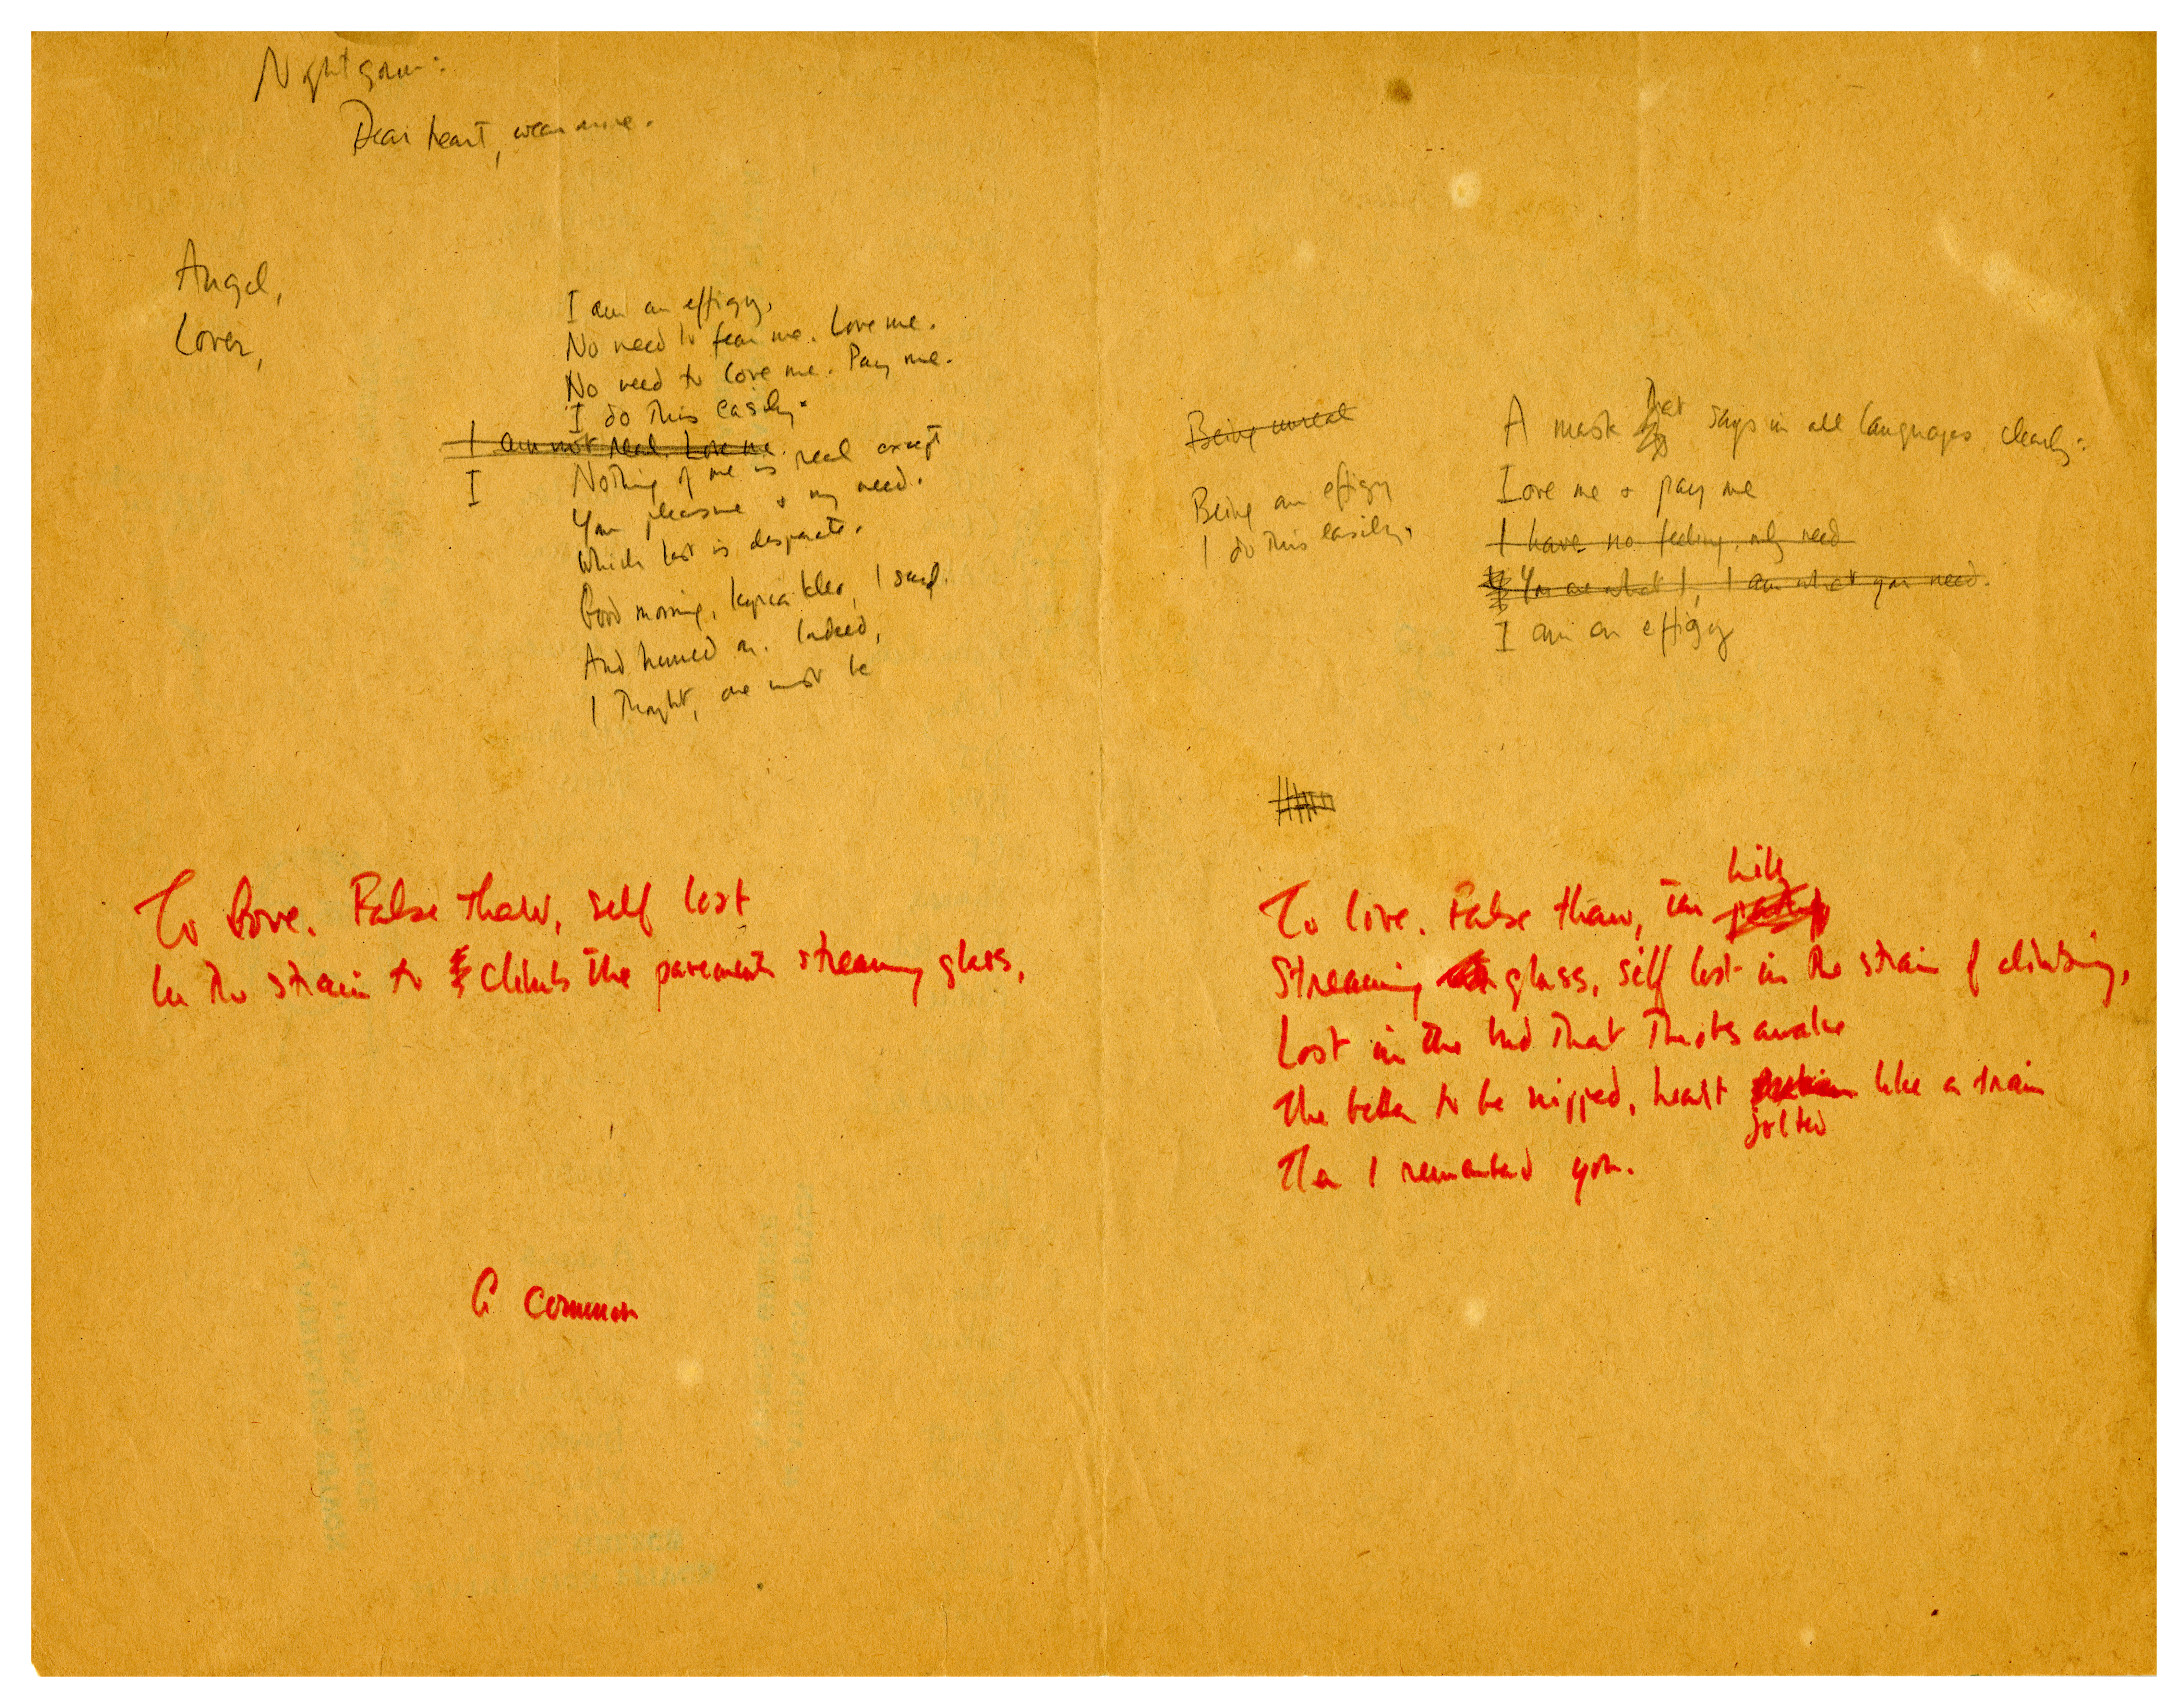 Nightgown:
Dear heart, wear mine.
Angel,
Lover,
I am an effigy,
No need to fear me. Love me.
No need to love me. Pay me.
I do this easily.
I am not real. Love me.
I Nothing of me is real except
Your pleasure + my need.
Which last is desperate.
Good morning, kyria Kleo, I said.
And hurried on. Indeed,
I thought, one must be
Being unreal
Being an effigy
I do this easily.
A mask that says in all languages clearly:
Love me + pay me
I have no feeling, only need
You are what I, I am what you need.
I am an effigy
To Love. False thaw, self lost
In the strain to climb the pavements streaming glass,
A common
To love. False thaw, the hill
Streaming glass, self lost in the strain of climbing,
Lost in the bud that throbs awake
The better to be nipped, heart like a train
jolted
Then I remembered you.